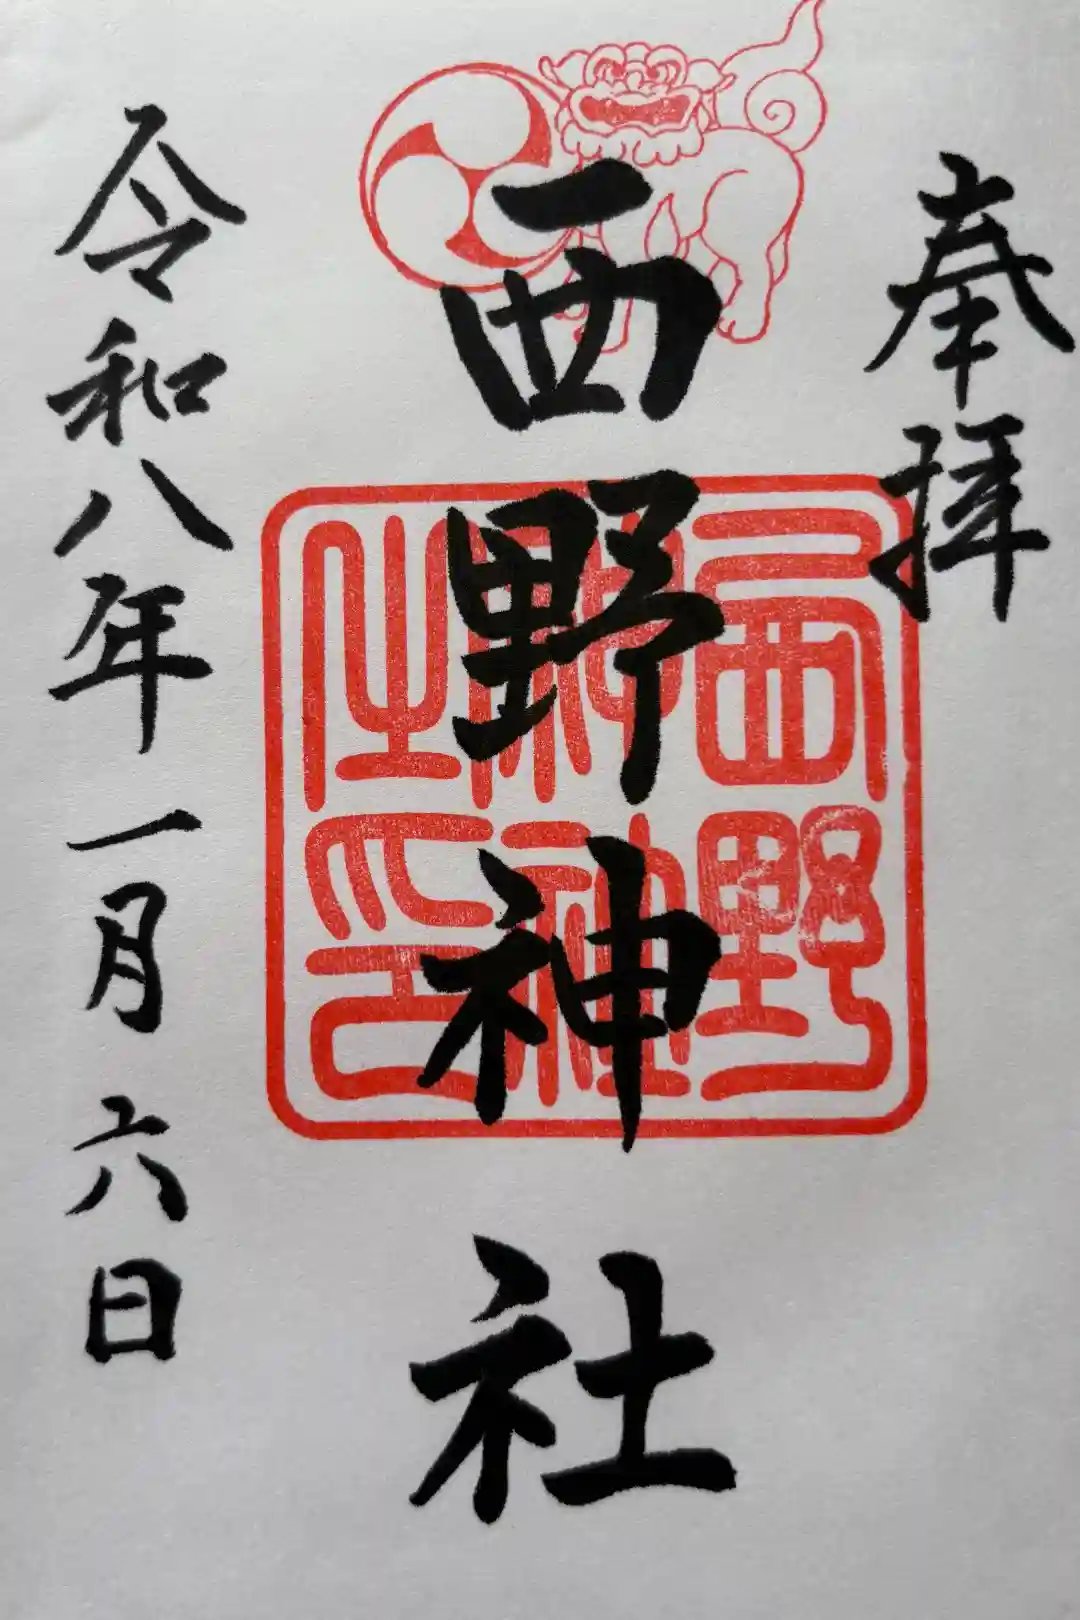 奉拝
西野神社
西野
神社
之印
令和八年一月六日